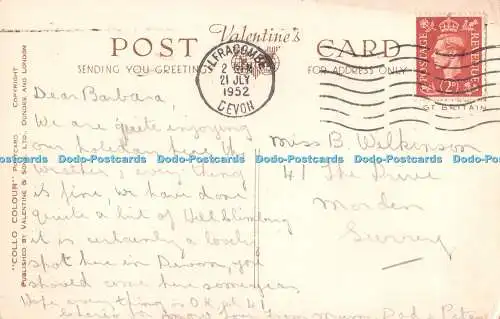 POST Valentine's CARD
SENDING YOU GREETINGS
FOR ADDRESS ONLY
ILFRACOMBE
2 PM
21 JLY
1952
DEVON
POSTAGE REVENUE
2D
GT BRITAIN
"COLLO COLOUR" POSTCARD COPYRIGHT
PUBLISHED BY VALENTINE & SONS LTD. DUNDEE AND LONDON
Dear Barbara,
We are quite enjoying
our holiday here the
weather & every thing
is fine, we have done
quite a bit of Hill Climbing
it is certainly a lovely
spot here in Devon, you
should come here sometime
Hope every thing is O.K. at 41
Cheerio for now love from Mum Dad & Peter
Miss B. Wilkinson
41 The Drive
Morden
Surrey
Dodo-Postcards Dodo-Postcards Dodo-Postcards Dodo-Postcards Dodo-Postcards